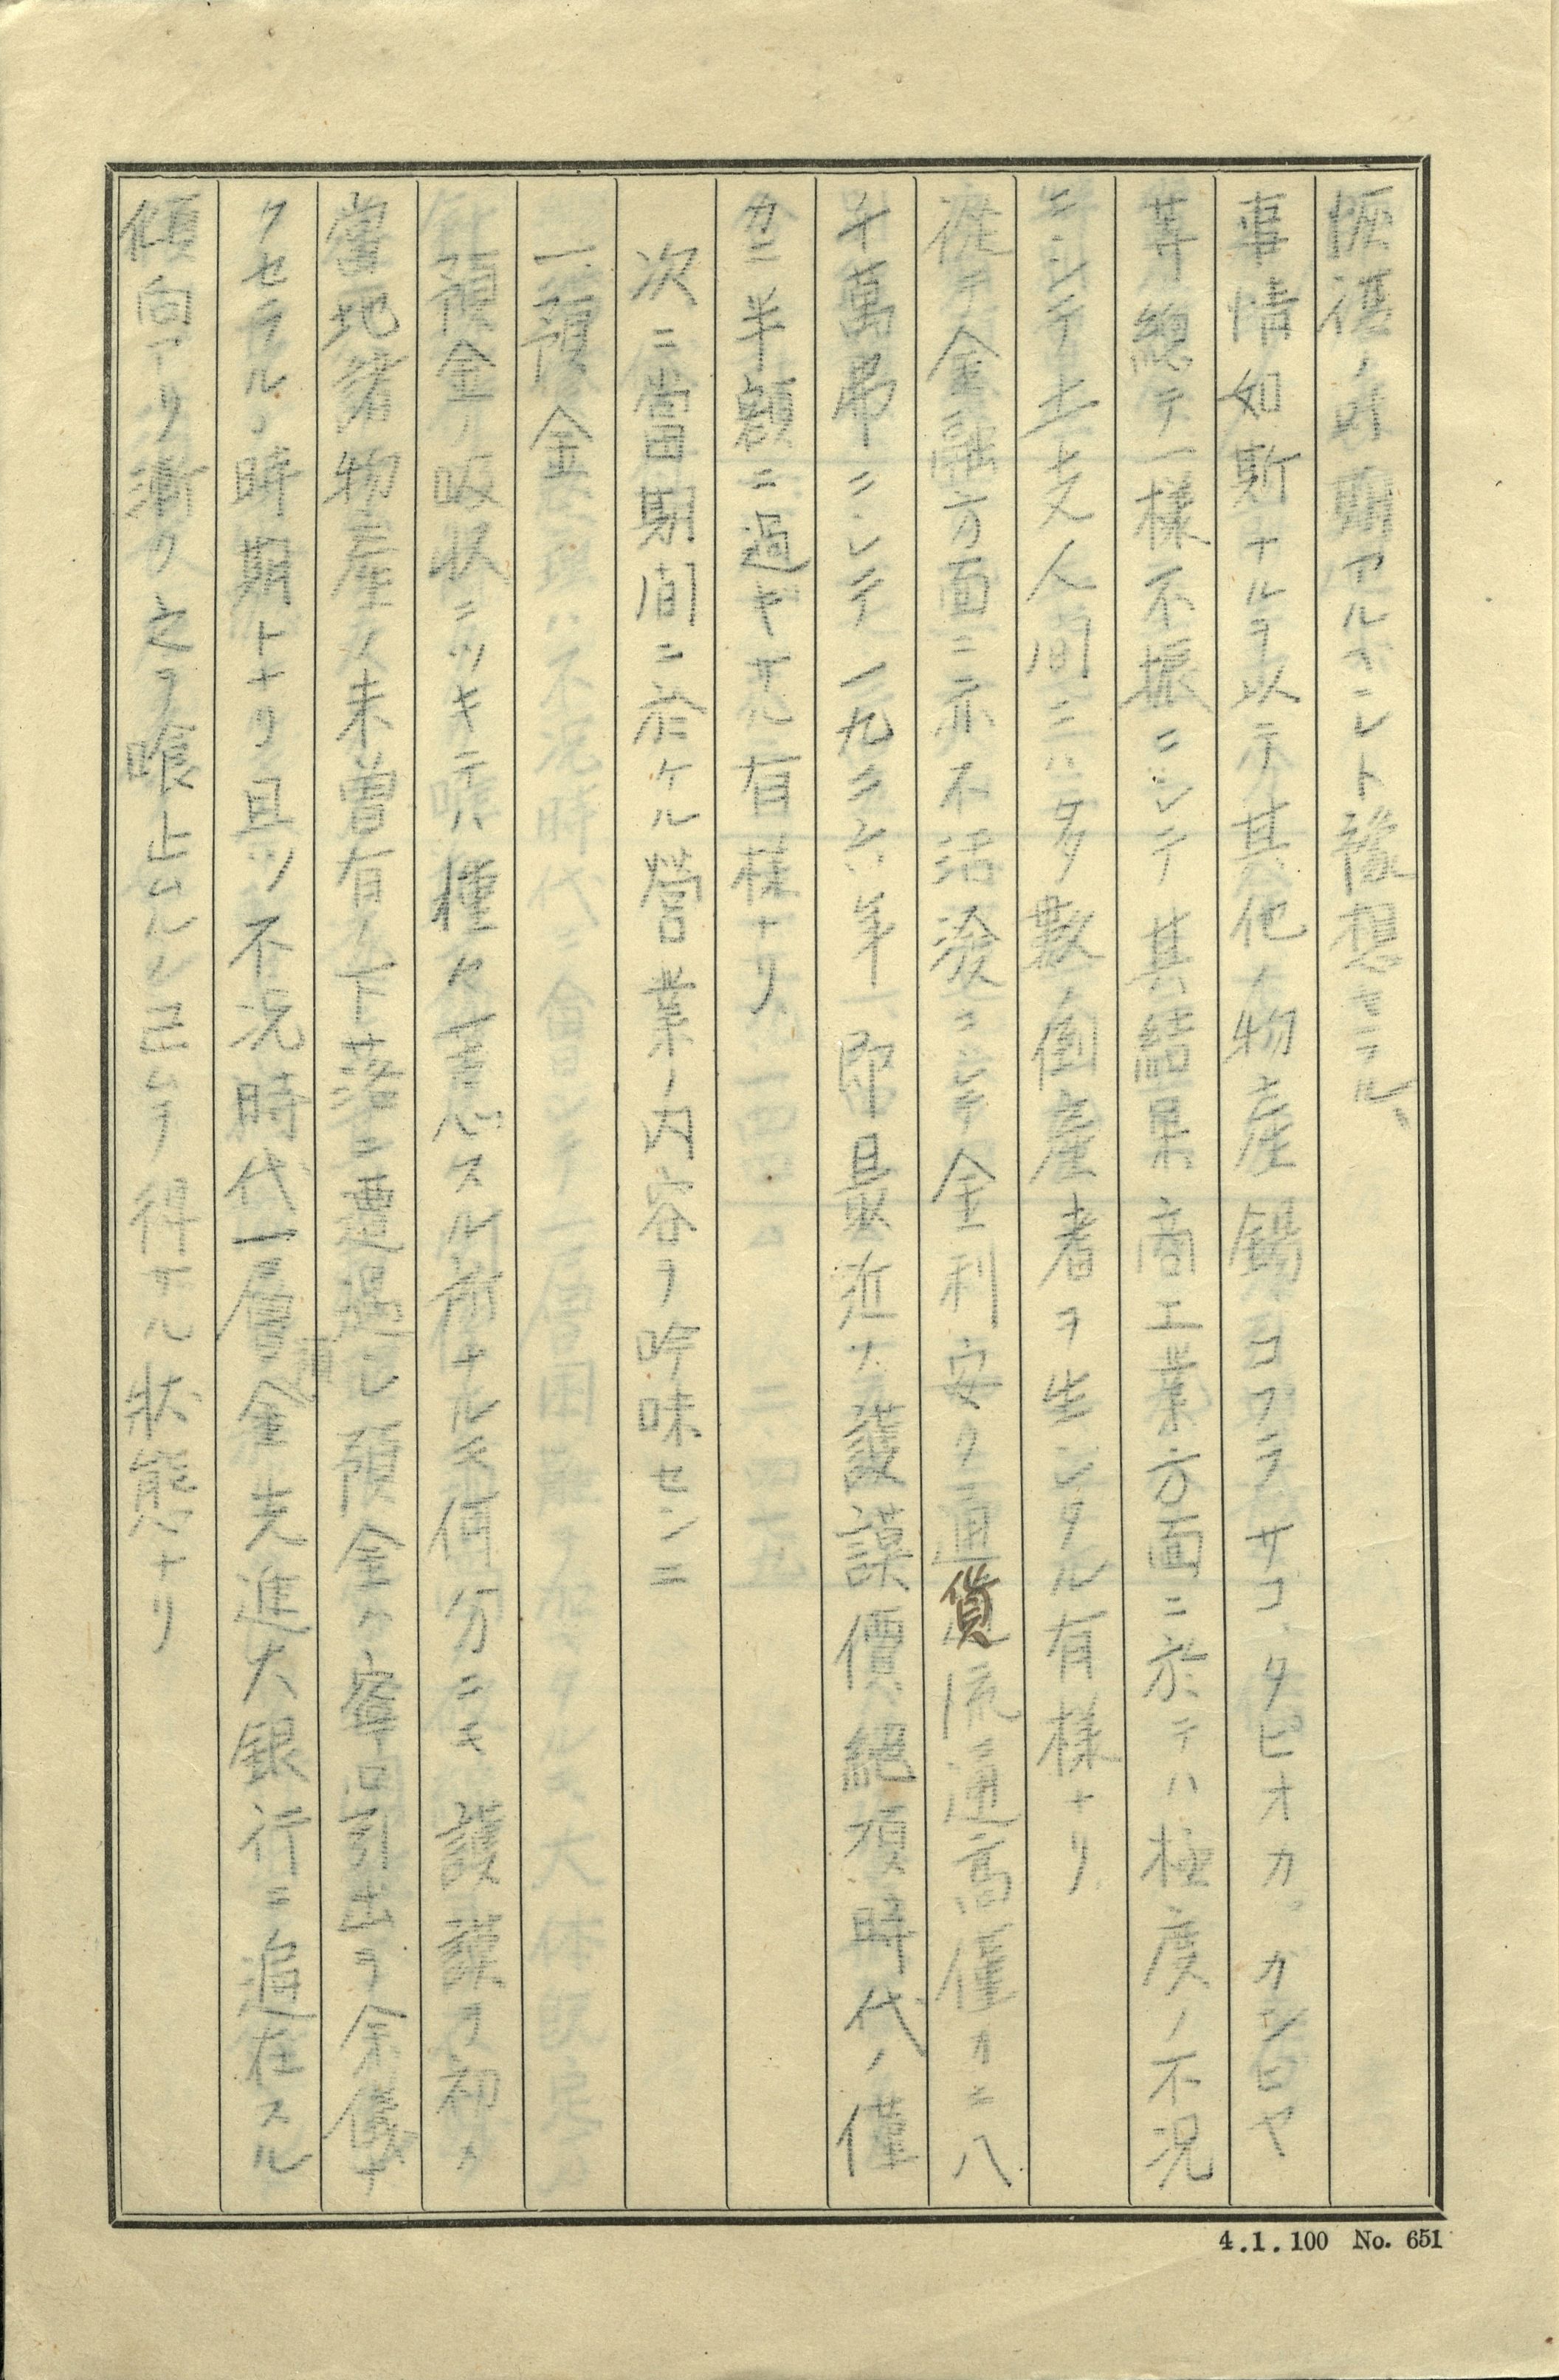 恢復ノ時期アルベシト豫想セラル、
事情如斯ナルヲ以テ其他ノ物産錫コプラサゴ、タピオカ。ガンビヤ
等總テ一様不振ニシテ其結果商工業方面ニ於テハ極度ノ不況
ニシテ土支人間ニハ多數ノ倒産者ヲ生ジタル有様ナリ
從テ金融方面ニ亦不活潑ニシテ金利安ク通貨流通高僅カニ八
千萬弗ニシテ一九二六年即最近ノ護謨價絕頂時代ノ僅
カニ半額ニ過ギザル有様ナリ
次ニ當期間ニ於ケル營業ノ内容ヲ吟味センニ
一、預金
預金ノ吸收ニツキテハ種々意ヲスル所ナルモ何分ニモ護謨ヲ初メ
當地諸物産ノ未曽有ノ下落ニ遭遇シ預金ハ寧ロ引出ヲ余儀ナ
クセラル、時期トナリ且ツ不況時代一層預金先進大銀行ニ偏在スル
傾向アリ漸ク之ヲ喰止ムルニ止ムヲ得ザル狀態ナリ
4.1.100 No. 651